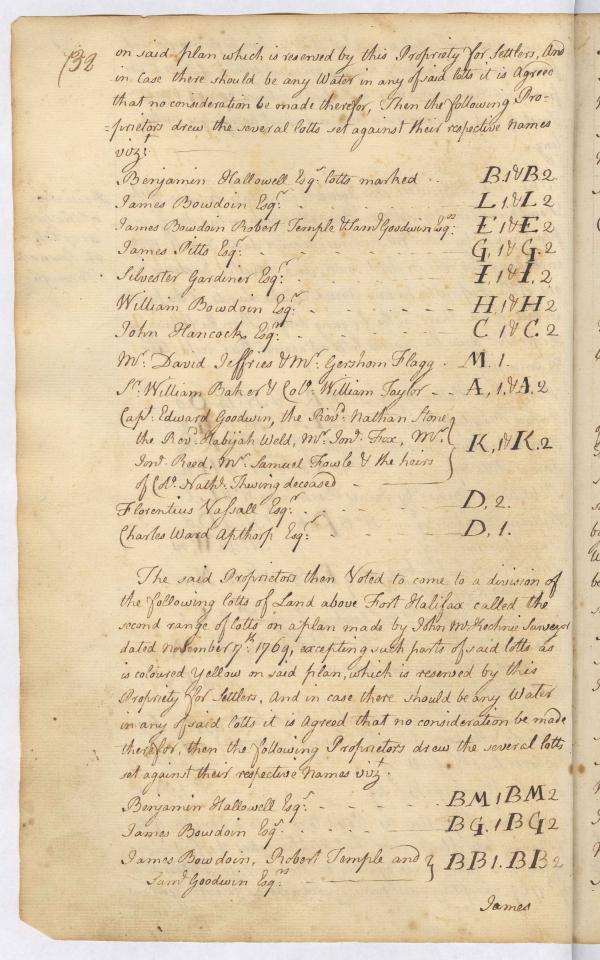 132
on said plan which is reserved by this Propriety for Settlers, And
in Case there should be any Water in any of said lotts it is Agreed
that no consideration be made therefor, Then the following Pro-
=prietors drew the several lotts set against their respective Names
vizt.
Benjamin Hallowell Esqr. lotts marked .. B.1 & B.2
James Bowdoin Esqr. L.1. & L.2
James Bowdoin Robert Temple & Saml Goodwin Esqrs: E 1 & E 2
James Pitts Esqr. G, 1 & G. 2
Silvester Gardiner Esqr. I, 1 & I, 2
William Bowdoin Esqr. H, 1 & H 2
John Hancock Esqr. C. 1 & C. 2
Mr. David Jeffries & Mr. Gershom Flagg . M. 1.
Sr. William Baker & Colo. William Taylor - - A, 1. & A. 2
Capt. Edward Goodwin, the Revd. Nathan Stone
the Revd. Habijah Weld, Mr. Jond. Fox, Mr. K, 1 & K. 2
Jond. Reed, Mr. Samuel Fowle & the heirs
of Colo. Nathl. Thwing deceased -
Florentius Vassall Esqr. D, 2.
Charles Ward Apthorp Esqr. D, 1.
The said Proprietors then Voted to come to a division of
the following lotts of Land above Fort Halifax called the
second range of lotts on a plan made by John McKechnie Surveyor
dated November 7th. 1769, excepting such parts of said lotts as
is coloured Yellow on said plan, which is reserved by this
Propriety for Settlers, And in case there should be any Water
in any of said lotts it is Agreed that no consideration be made
therefor, then the following Proprietors drew the several lotts
set against their respective Names vizt.
Benjamin Hallowell Esqr. BM 1 BM 2
James Bowdoin Esqr. BG. 1 BG 2
James Bowdoin, Robert Temple and BB 1. BB 2
Saml Goodwin Esqrs.
James